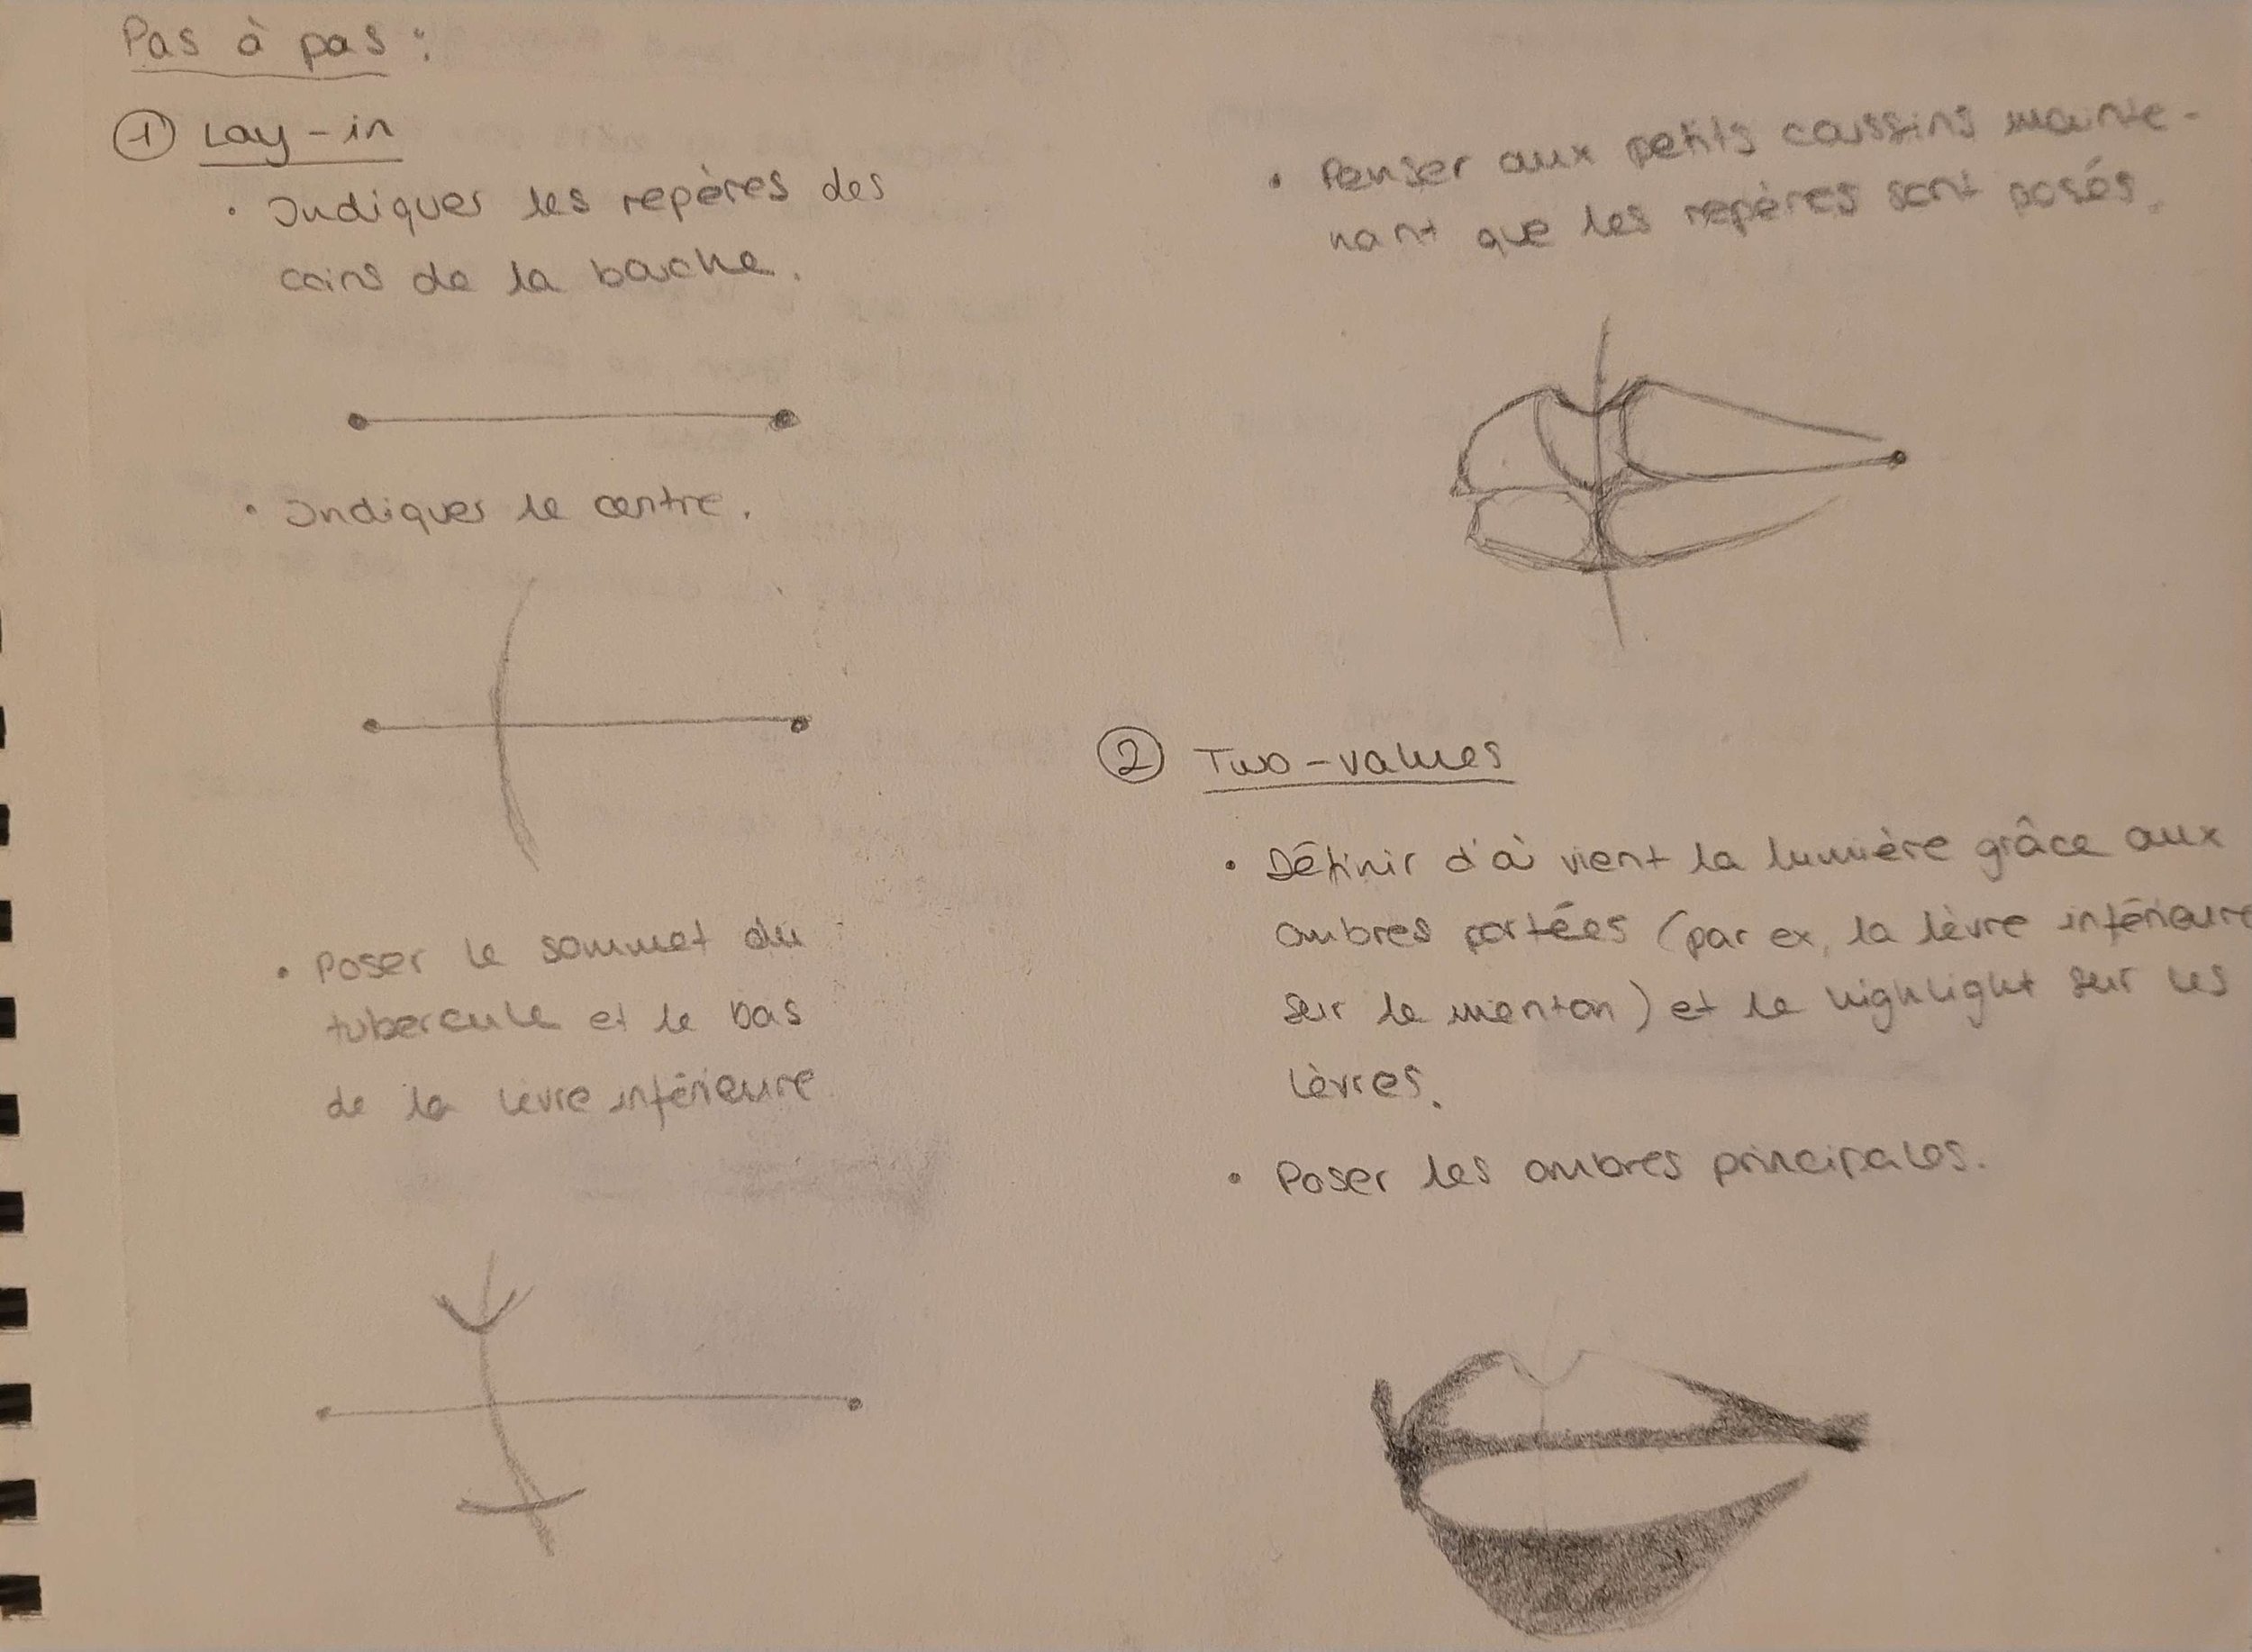 Pas à pas :
① Lay-in
• Indiquer les repères des
coins de la bouche.
• Indiquer le centre.
• Poser le sommet du
tubercule et le bas
de la lèvre inférieure
• Penser aux petits coussins mainte-
nant que les repères sont posés.
② Two-values
• Définir d'où vient la lumière grâce aux
ombres portées (par ex, la lèvre inférieure
sur le menton) et le highlight sur les
lèvres.
• Poser les ombres principales.